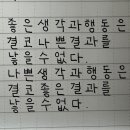 좋은생각과행동은
결코나쁜결과를
낳을수없다.
나쁜생각과행동은
결코좋은결과를
낳을수없다.